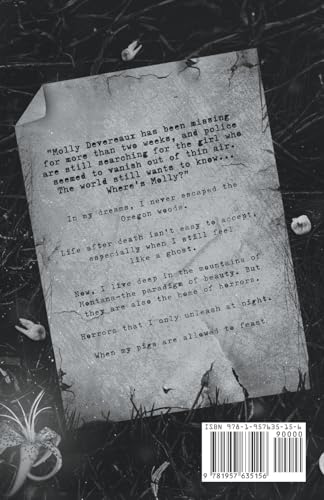 "Molly Devereaux has been missing
for more than two weeks, and police
are still searching for the girl who
seemed to vanish out of thin air.
The world still wants to know...
Where's Molly?"
In my dreams, I never escaped the
Oregon woods.
Life after death isn't easy to accept,
especially when I still feel
like a ghost.
Now, I live deep in the mountains of
Montana—the paradigm of beauty. But
they are also the home of horrors.
Horrors that I only unleash at night.
When my pigs are allowed to feast
ISBN 978-1-957635-15-6
90000
9 781957 635156